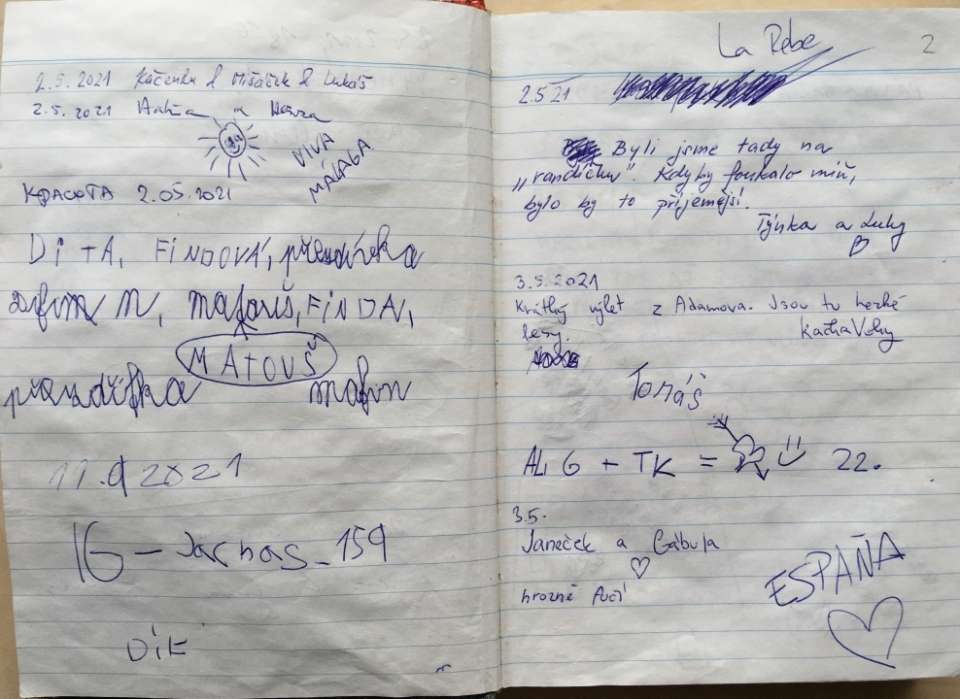 2.5.2021 Káčenka & Míšáček & Lukáš
2.5.2021 a
VIVA
MÁLAGA
КРАСОТА 2.05.2021
DiTA, FiNDOVÁ, přezdívka
mafin,
MATOUŠ
přezdífka mafin
2021
IG – Jachas_159
Dík
2
La Rebe
2.5 21
Byli jsme tady na
„randíčku". Kdyby foukalo míň,
bylo by to příjemější.
Týnka a
3.5.2021
Krátký výlet z Adamova. Jsou tu hezké
lesy.
Tomáš
ALi G + TK = 22.
3.5.
Janeček a Gábula
hrozně fučí
ESPAÑA